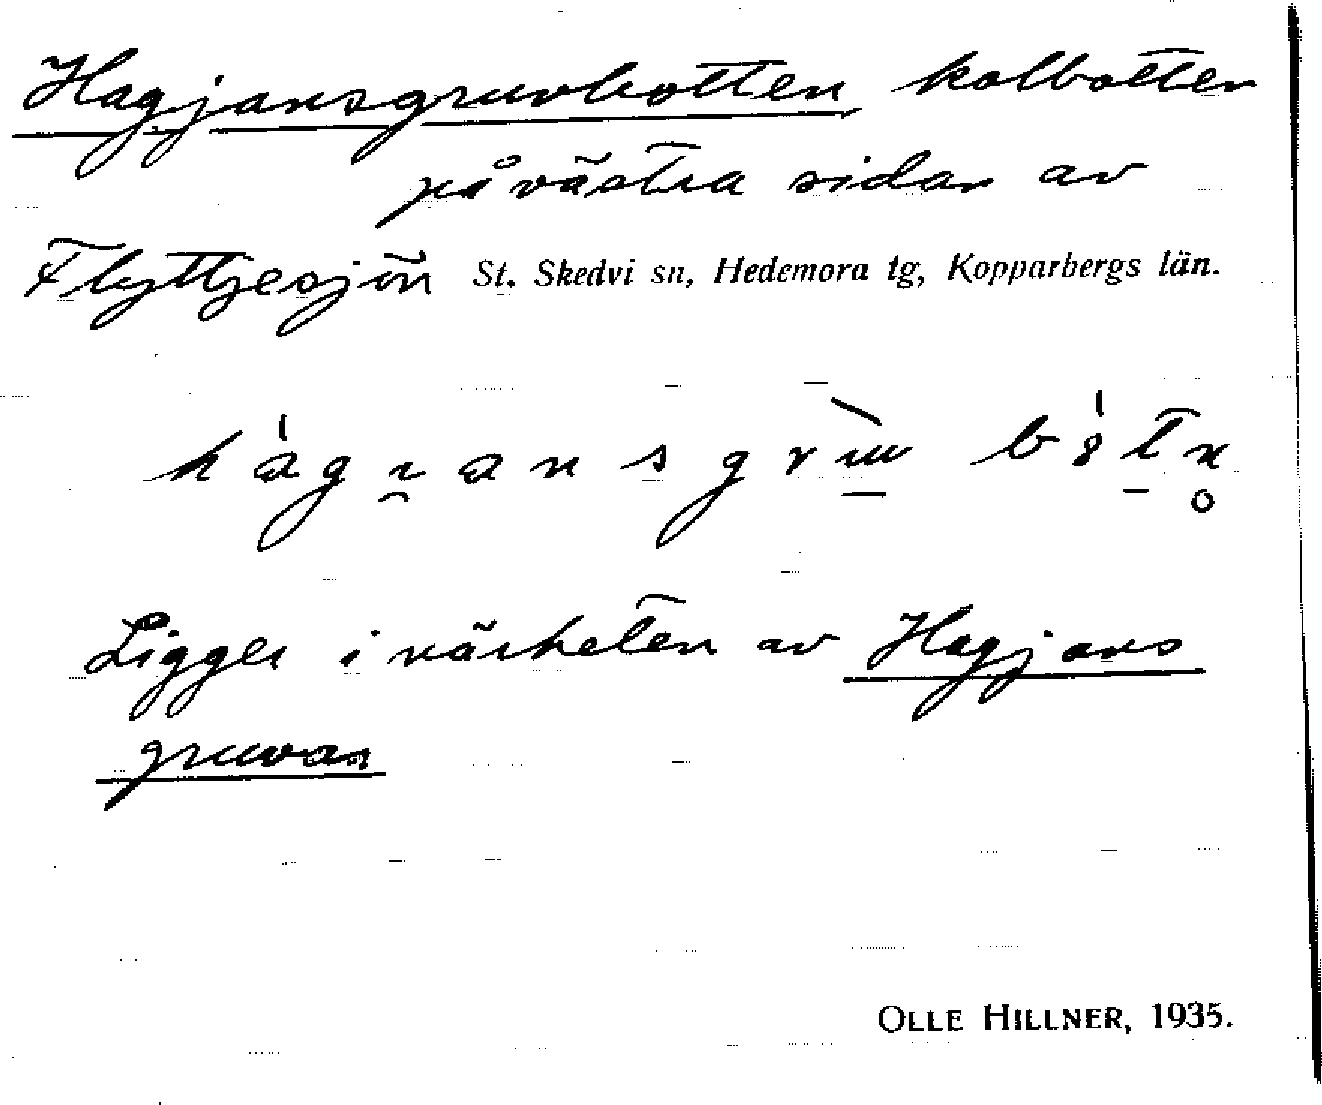 Hagjansgruvbotten kolbotten
på västra sidan av
Flyttjesjön St. Skedvi sn, Hedemora tg, Kopparbergs län.
Ligger i närheten av Hagjans
gruvan
OLLE HILLNER, 1935.